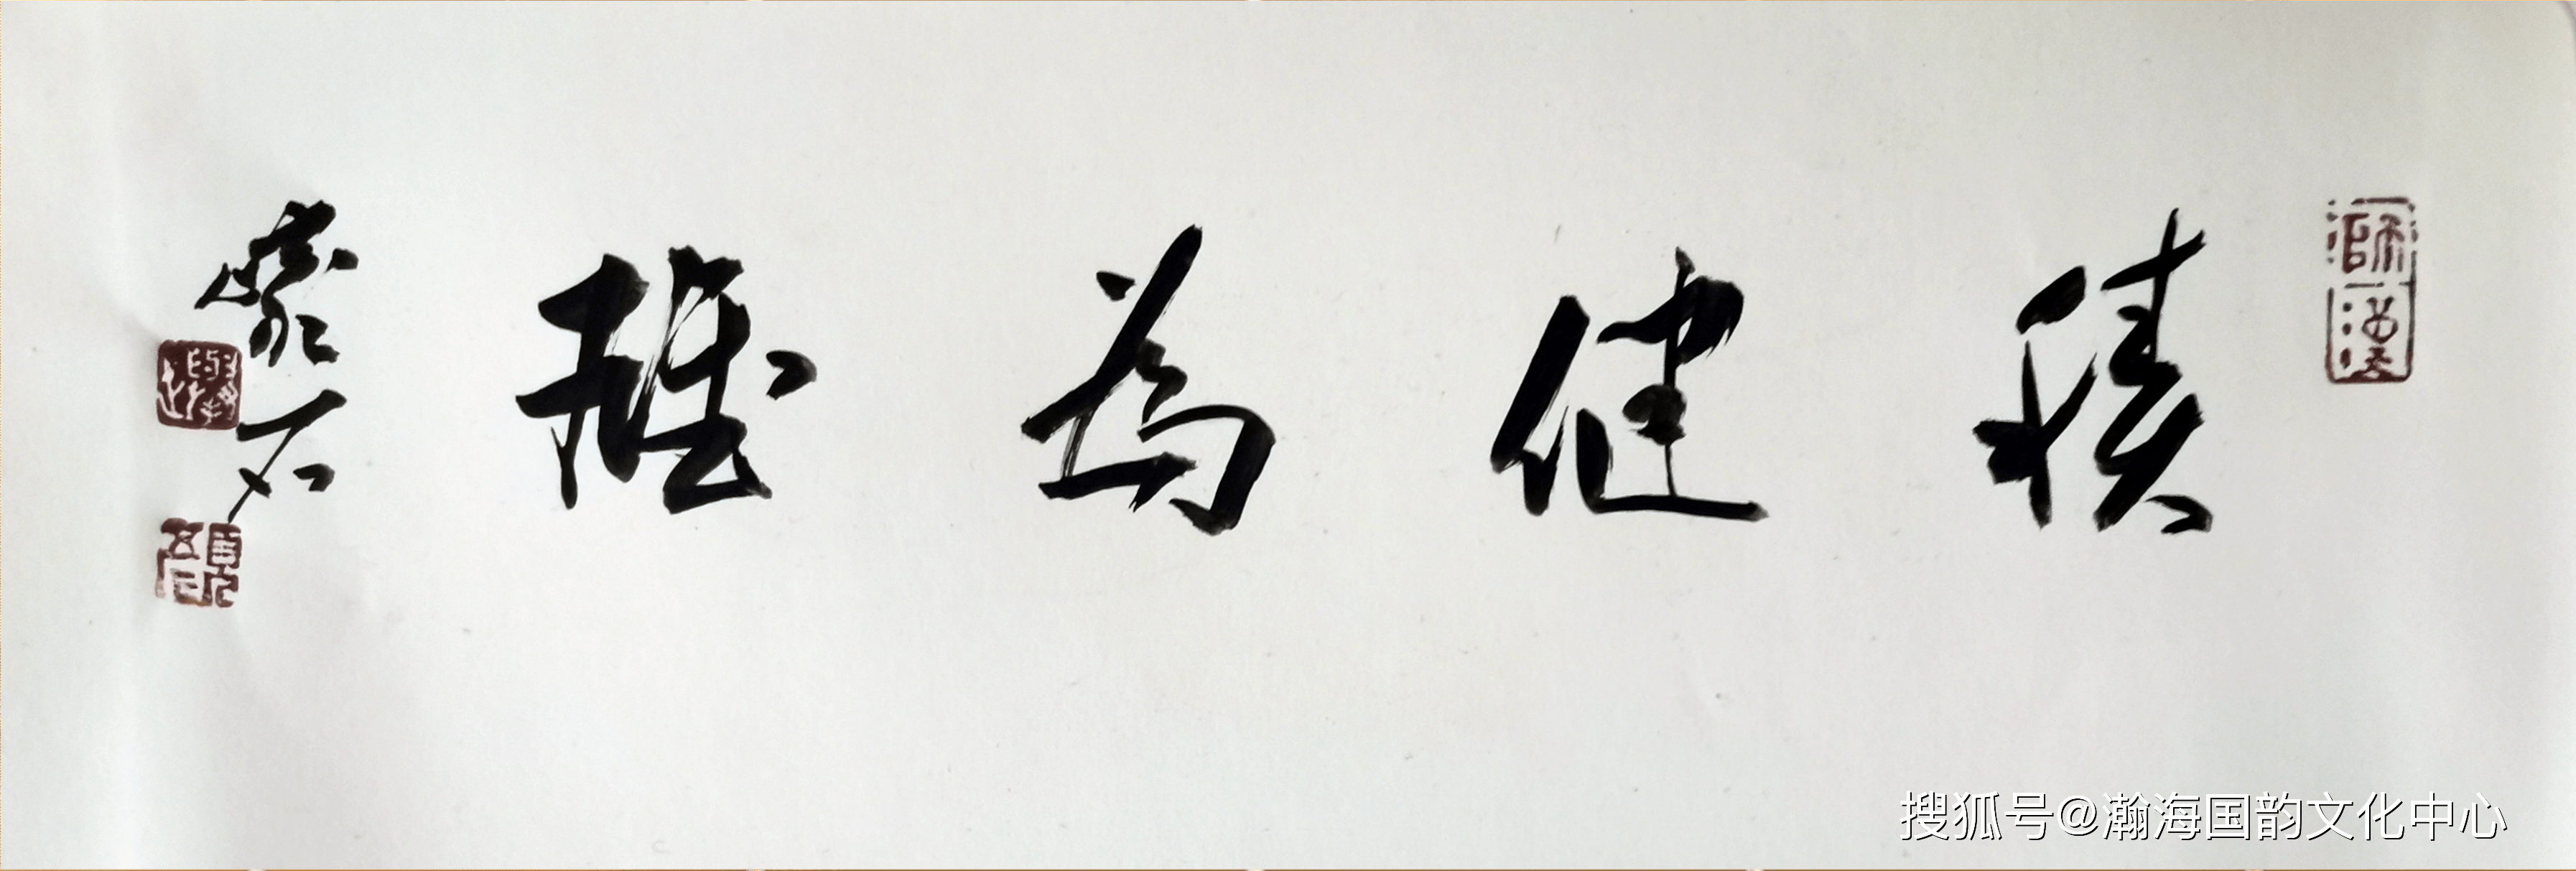 積健為雄
蒙石
搜狐号@瀚海国韵文化中心